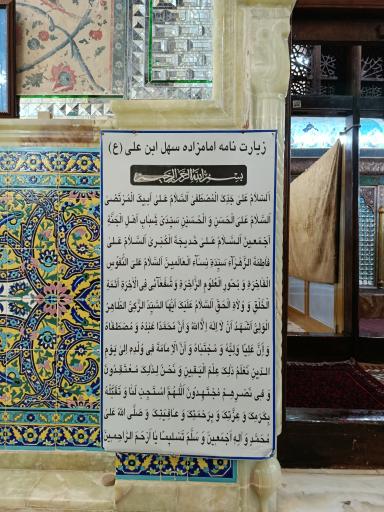 زیارت نامه امامزاده سهل ابن علی (ع)
بسم الله الرحمن الرحیم
اَلسَّلامُ عَلی جَدِّکَ الْمُصْطَفی اَلسَّلامُ عَلی اَبیکَ الْمُرْتَضی
اَلسَّلامُ عَلَی الْحَسَنِ وَ الْحُسَیْنِ سَیِّدَیْ شَبابِ اَهْلِ الْجَنَّةِ
اَجْمَعینَ اَلسَّلامُ عَلی خَدیجَةَ الْکُبْری اَلسَّلامُ عَلی
فاطِمَةَ الزَّهْرآءِ سَیِّدَةِ نِسآءِ الْعالَمینَ اَلسَّلامُ عَلَی النُّفُوسِ
الْفاخِرَةِ وَ بُحُورِ الْعُلُومِ الزّاخِرَةِ وَ شُفَعآئی فِی الْآخِرَةِ اَئِمَّةِ
الْخَلْقِ وَ وُلاةِ الْحَقِّ اَلسَّلامُ عَلَیْکَ اَیُّهَا السَّیِّدُ الزَّکِیُّ الطّاهِرُ
الْوَلِیُّ اَشْهَدُ اَنْ لا اِلهَ اِلاَّ اللهُ وَ اَنَّ مُحَمَّدًا عَبْدُهُ وَ مُصْطَفاهُ
وَ اِنَّ عَلِیًّا وَلِیُّهُ وَ مُجْتَباهُ وَ اَنَّ الْاِمامَةَ فی وُلْدِهِ اِلی یَوْمِ
الدّینِ نَعْلَمُ ذلِکَ عِلْمَ الْیَقینِ وَ نَحْنُ لِذلِکَ مُعْتَقِدُونَ
وَ فی نَصْرِهِمْ مُجْتَهِدُونَ اَللّهُمَّ اسْتَجِبْ لَنا وَ تَقَبَّلْهُ
بِکَرَمِکَ وَ عِزَّتِکَ وَ بِرَحْمَتِکَ وَ عافِیَتِکَ وَ صَلَّی اللهُ عَلی
مُحَمَّدٍ وَ الِهِ اَجْمَعینَ وَ سَلَّمَ تَسْلیمًا یا اَرْحَمَ الرّاحِمینَ